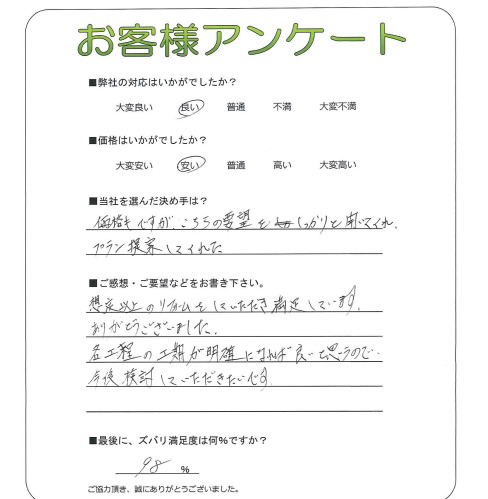 お客様アンケート
■弊社の対応はいかがでしたか？
大変良い 良い 普通 不満 大変不満
■価格はいかがでしたか？
大変安い 安い 普通 高い 大変高い
■当社を選んだ決め手は？
価格もですが、こちらの要望をしっかりと聞いてくれ、
プラン提案してくれた
■ご感想・ご要望などをお書き下さい。
想定以上のリフォームをしていただき満足しています。
ありがとうございました。
各工程の工期が明確になれば良いと思うので、
今後検討していただきたいです。
■最後に、ズバリ満足度は何％ですか？
98 ％
ご協力頂き、誠にありがとうございました。